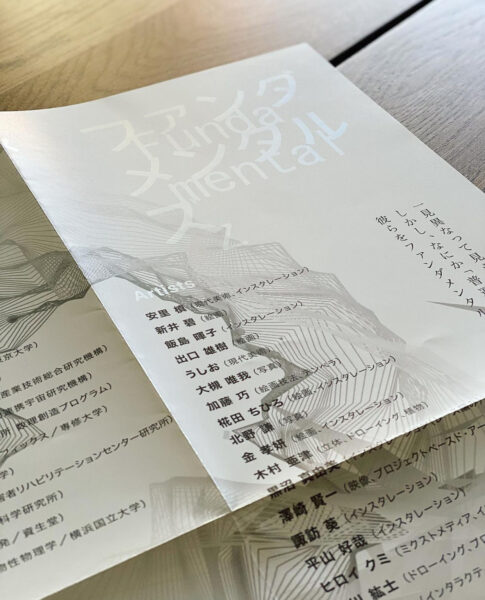 ファンダ
Funda
メンタル
mental
ズ
一見異なって見
しかし、なにか「普
彼らをファンダメンタル
Artists
安里 槙（現代美術、インスタレーション）
新井 碧（絵画）
飯島 暉子（インスタレーション）
出口 雄樹（絵画）
うしお（現代美
大槻 唯我（写真）
加藤 巧（絵画技法、テンペラ）
椛田 ちひろ（絵画、インスタレーション）
北野 謙（写真）
金 孝妍（絵画、インスタレーション）
木村 亜津（立体、ドローイング、植物）
（映像、プロジェクトベースド・アー
澤崎 賢一
諏訪 葵（インスタレーション）
平山 好哉（インスタレーション）
ヒロイ クミ（ミクストメディア、イ
川 紘士（ドローイング、プロ
インタラクテ
京大学）
産業技術総合研究機構）
携宇宙研究機構）
所 数理創造プログラム）
ックス／専修大学）
学）
害者リハビリテーションセンター研究所）
科学研究所）
発／資生堂）
物性物理学／横浜国立大学）